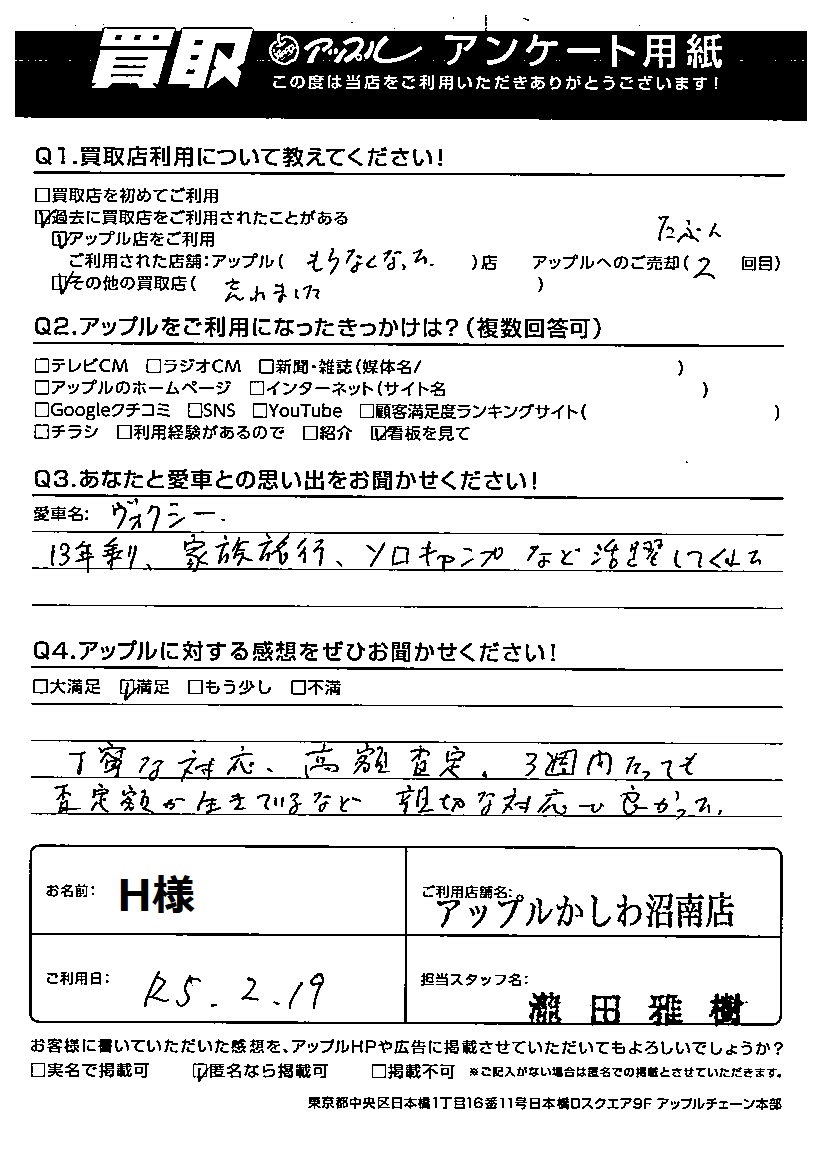 買取 アップル アンケート用紙
この度は当店をご利用いただきありがとうございます！
Q1.買取店利用について教えてください！
□買取店を初めてご利用
☑過去に買取店をご利用されたことがある
☑アップル店をご利用
たぶん
ご利用された店舗：アップル（ もうなくなった. ）店 アップルへのご売却（ 2 回目）
☑その他の買取店（ 忘れました ）
Q2.アップルをご利用になったきっかけは？（複数回答可）
□テレビCM □ラジオCM □新聞・雑誌（媒体名/ ）
□アップルのホームページ □インターネット（サイト名 ）
□Googleクチコミ □SNS □YouTube □顧客満足度ランキングサイト（ ）
□チラシ □利用経験があるので □紹介 ☑看板を見て
Q3.あなたと愛車との思い出をお聞かせください！
愛車名： ヴォクシー.
13年乗り、家族旅行、ソロキャンプなど活躍してくれた
Q4.アップルに対する感想をぜひお聞かせください！
□大満足 ☑満足 □もう少し □不満
丁寧な対応、高額査定、3週間たっても
査定額が生きているなど 親切な対応で良かった.
お名前： H様
ご利用店舗名：
アップルかしわ沼南店
ご利用日： R5.2.19
担当スタッフ名：
瀧田雅樹
お客様に書いていただいた感想を、アップルHPや広告に掲載させていただいてもよろしいでしょうか？
□実名で掲載可 ☑匿名なら掲載可 □掲載不可 ※ご記入がない場合は匿名での掲載とさせていただきます。
東京都中央区日本橋1丁目16番11号日本橋Dスクエア9F アップルチェーン本部